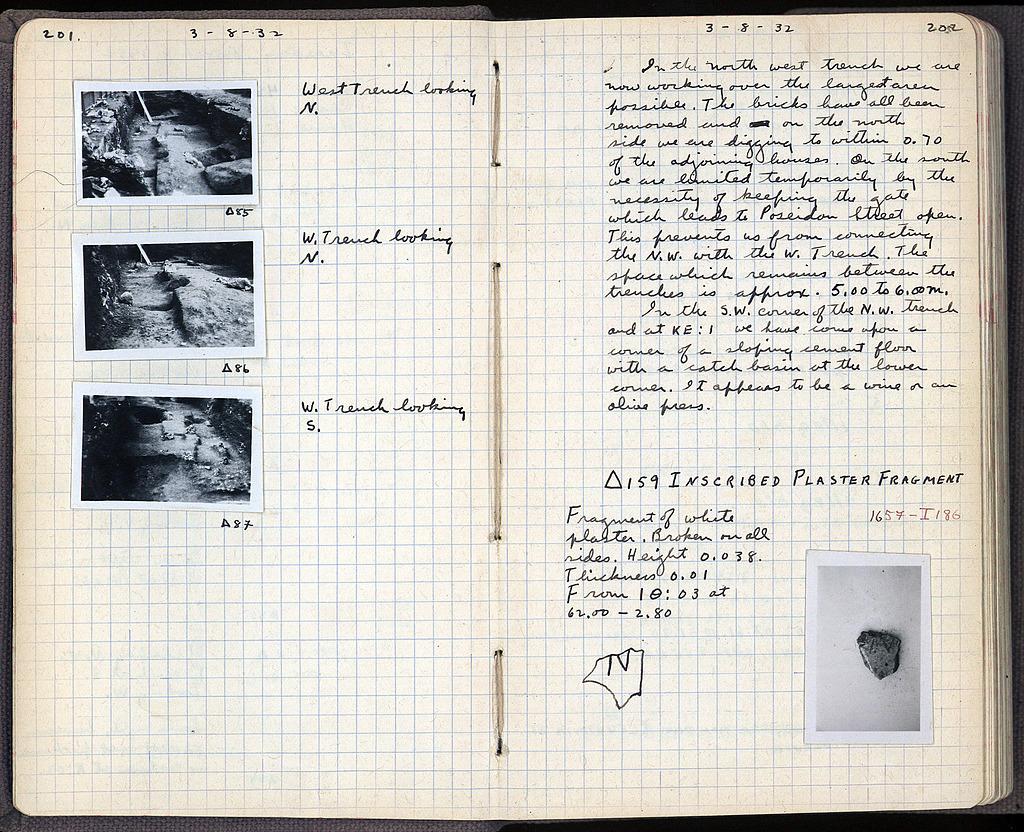 201.
3 - 8 - 32
West Trench looking
N.
Δ85
W. Trench looking
N.
Δ86
W. Trench looking
S.
Δ87
3 - 8 - 32
202
In the north west trench we are
now working over the largest area
possible. The bricks have all been
removed and on the north
side we are digging to within 0.70
of the adjoining houses. On the south
we are limited temporarily by the
necessity of keeping the gate
which leads to Poseidon Street open.
This prevents us from connecting
the N.W. with the W. Trench. The
space which remains between the
trenches is approx. 5.00 to 6.00m.
In the S.W. corner of the N.W. trench
and at KE:1 we have come upon a
corner of a sloping cement floor
with a catch basin at the lower
corner. It appears to be a wine or an
olive press.
Δ159 INSCRIBED PLASTER FRAGMENT
1657 - I 186
Fragment of white
plaster. Broken on all
sides. Height 0.038.
Thickness 0.01
From ΙΘ:03 at
62.00 - 2.80
N